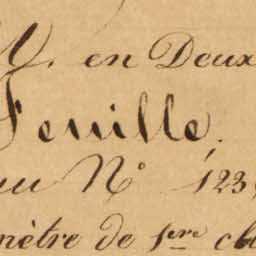 en Deux
Feuille,
au N° 123
mètre de 1re cla